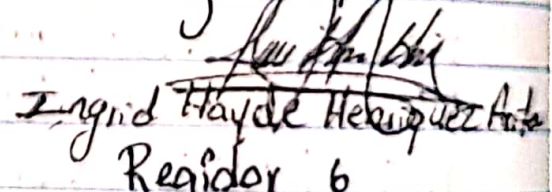 Ingrid Hayde Henriquez
Regidor 6